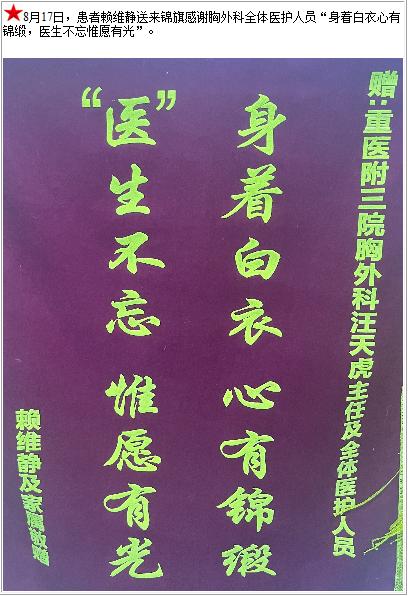 ★8月17日，患者赖维静送来锦旗感谢胸外科全体医护人员“身着白衣心有
锦缎，医生不忘惟愿有光”。
赠:重医附三院胸外科汪天虎主任及全体医护人员
身着白衣 心有锦缎
“医”生不忘 惟愿有光
赖维静及家属敬赠